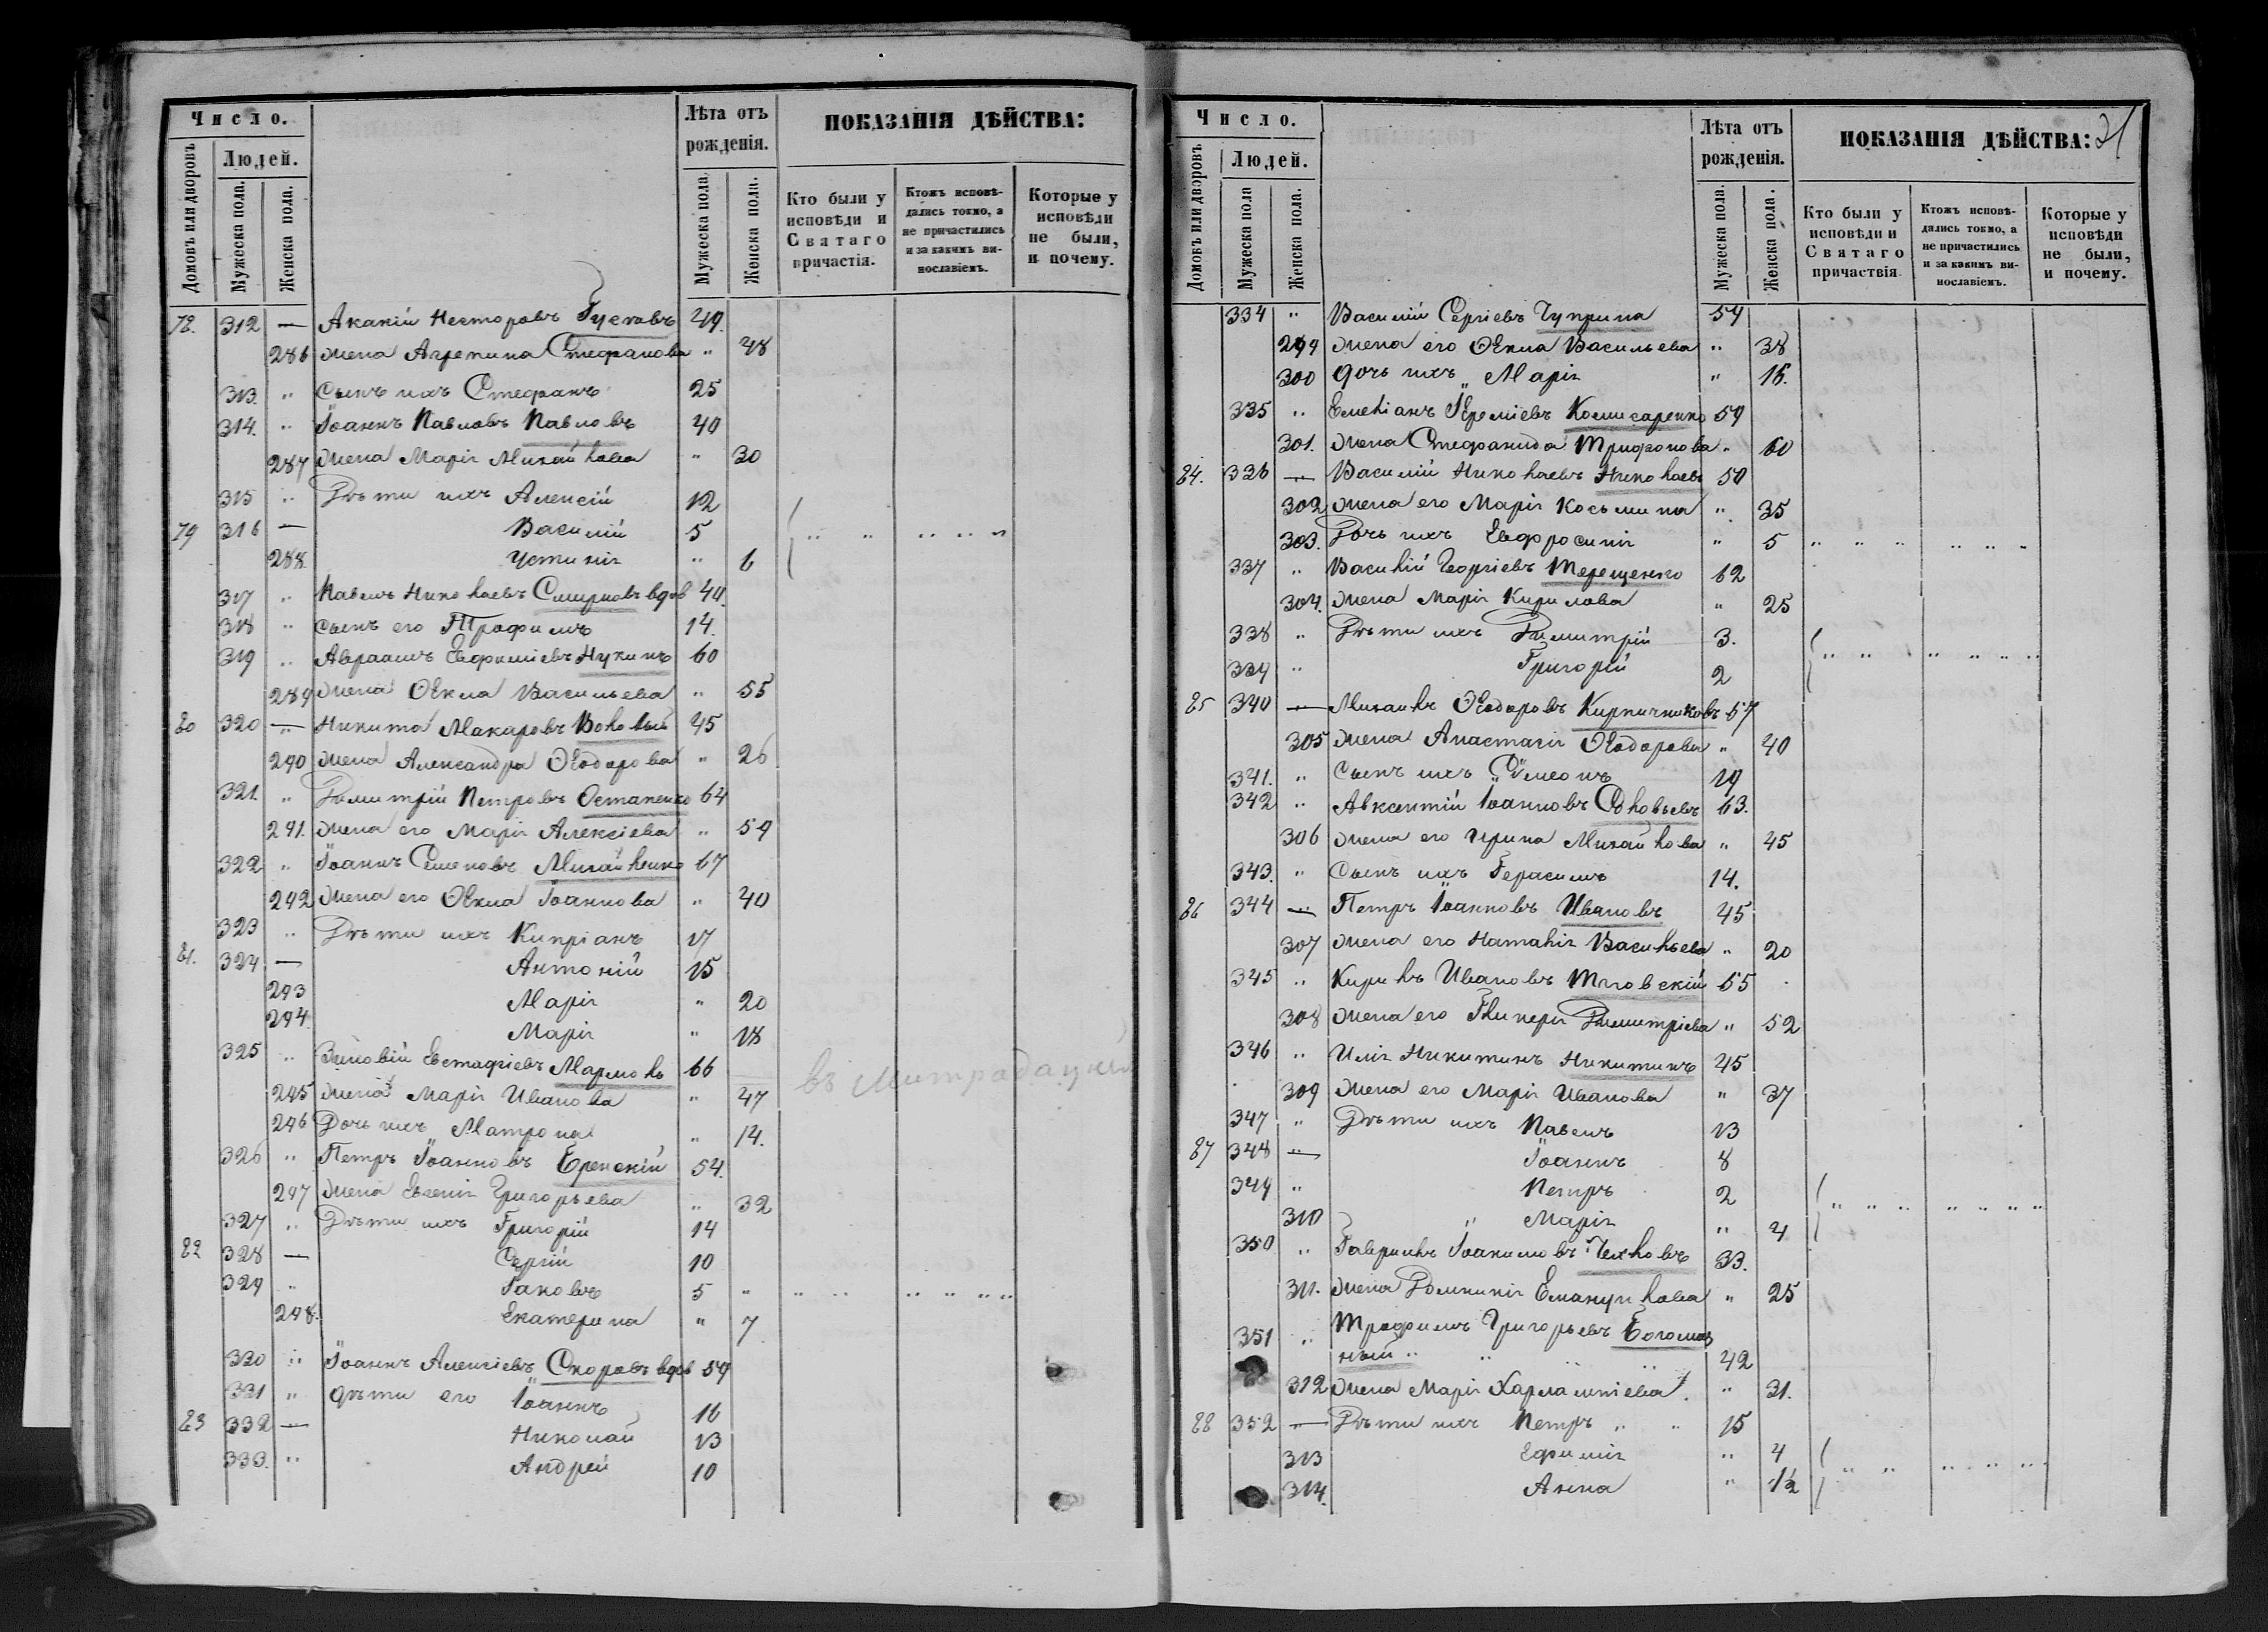 Число.
Лѣта отъ рожденія.
ПОКАЗАНІЯ ДѢЙСТВА:
Домовъ или дворовъ
Людей.
Мужеска пола.
Женска пола.
Мужеска пола
Женска пола.
Кто были у исповѣди и Святаго причастія.
Ктожъ исповѣ-дались токмо, а не причастились и за какимъ ви-нословіемъ.
Которые у исповѣди не были, и почему.
78. 312 — Акакій Несторовъ Гусковъ 49.
286 жена Агрепина Стефанова " 48
313. " сынъ ихъ Стефанъ 25
314. " Іоаннъ Павловъ Павловъ 40
287 жена Марія Михайлова " 30
315 " Дѣти ихъ Алексій 12
79 316 — Василій 5
288. Устинія " 6
317 " Павелъ Николаевъ Смирновъ вдов 44.
318 " сынъ его Трофимъ 14.
319 " Авраамъ Евфиміевъ Нукинъ 60
289 жена Ѳекла Васильева " 55
80 320 — Никита Макаровъ 45
290 жена Александра Ѳеодорова " 26
321. " Димитрій Петровъ Остапенко 64
291. жена его Марія Алексіева " 59
322 " Іоаннъ Семеновъ Михайленко 67
292 жена его Ѳекла Іоаннова " 40
323 " Дѣти ихъ Кипріанъ 17
81. 324 — Антоній 15
293 Марія " 20
294. Марія " 18
325 " Зиновій Евстафіевъ 66
въ
295 жена Марія Иванова " 47
296 Дочь ихъ Матрона " 14.
326 " Петръ Іоанновъ Еренскій 54.
297 жена Евгенія Григорьева " 32
327 " Дѣти ихъ Григорій 14
82 328 — Сергій 10
329 " Іаковъ 5 "
298. Екатерина " 7
330 " Іоаннъ Алексіевъ Скоровъ вдов 59
331 " дѣти его Іоаннъ 16
83 332 — Николай 13
333. " Андрей 10
Число.
Лѣта отъ рожденія.
ПОКАЗАНІЯ ДѢЙСТВА: 21
Домовъ или дворовъ
Людей.
Мужеска пола
Женска пола.
Мужеска пола.
Женска пола.
Кто были у исповѣди и Святаго причаствія
Ктожъ исповѣ-дались токмо, а не причастились и за какимъ ви-нословіемъ.
Которые у исповѣди не были, и почему.
334 " Василій Сергіевъ Чуприна 54
299 жена его Ѳекла Васильева " 38
300 дочь ихъ " Марія " 16.
335 " Емеліанъ Іереміевъ Комисаренко 59
301. жена Стефанида Трифонова " 60
84. 336 — Василій Николаевъ Николаевъ 50
302 жена его Марія Косьмина " 35
303. Дочь ихъ Евфросинія " 5
337 " Василій Георгіевъ Терещенко 62
304. жена Марія Кирилова " 25
338 " Дѣти ихъ Димитрій 3.
339 " Григорій 2
85 340 — Михаилъ Ѳеодоровъ Кирпичниковъ 57
305 жена Анастасія Ѳеодорова " 40
341. " Сынъ ихъ Симеонъ 19
342 " Авксентій Іоанновъ 63.
306 жена его Ирина Михайлова " 45
343. " Сынъ ихъ Герасимъ 14.
86 344 — Петръ Іоанновъ Ивановъ 45
307 жена его Наталія Васильева " 20
345 " Кирилъ Ивановъ 65
308 жена его Гликерія Димитріева " 52
346 " Илія Никитинъ Никитинъ 45
309 жена его Марія Иванова " 37
347 " Дѣти ихъ Павелъ 13
87 348 — Іоаннъ 8
349 " Петръ 2
310 " Марія " 4
350 " Гавріилъ Іоакимовъ Чехловъ 33.
311. жена Домникія Емануилова " 25
351 " Трофимъ Григорьевъ Богомаз
ный " " " " 42
312 жена Марія Харлампіева. " 31.
88 352 — Дѣти ихъ Петръ " " 15
313 Ефимія " 4
314. Анна " 1½